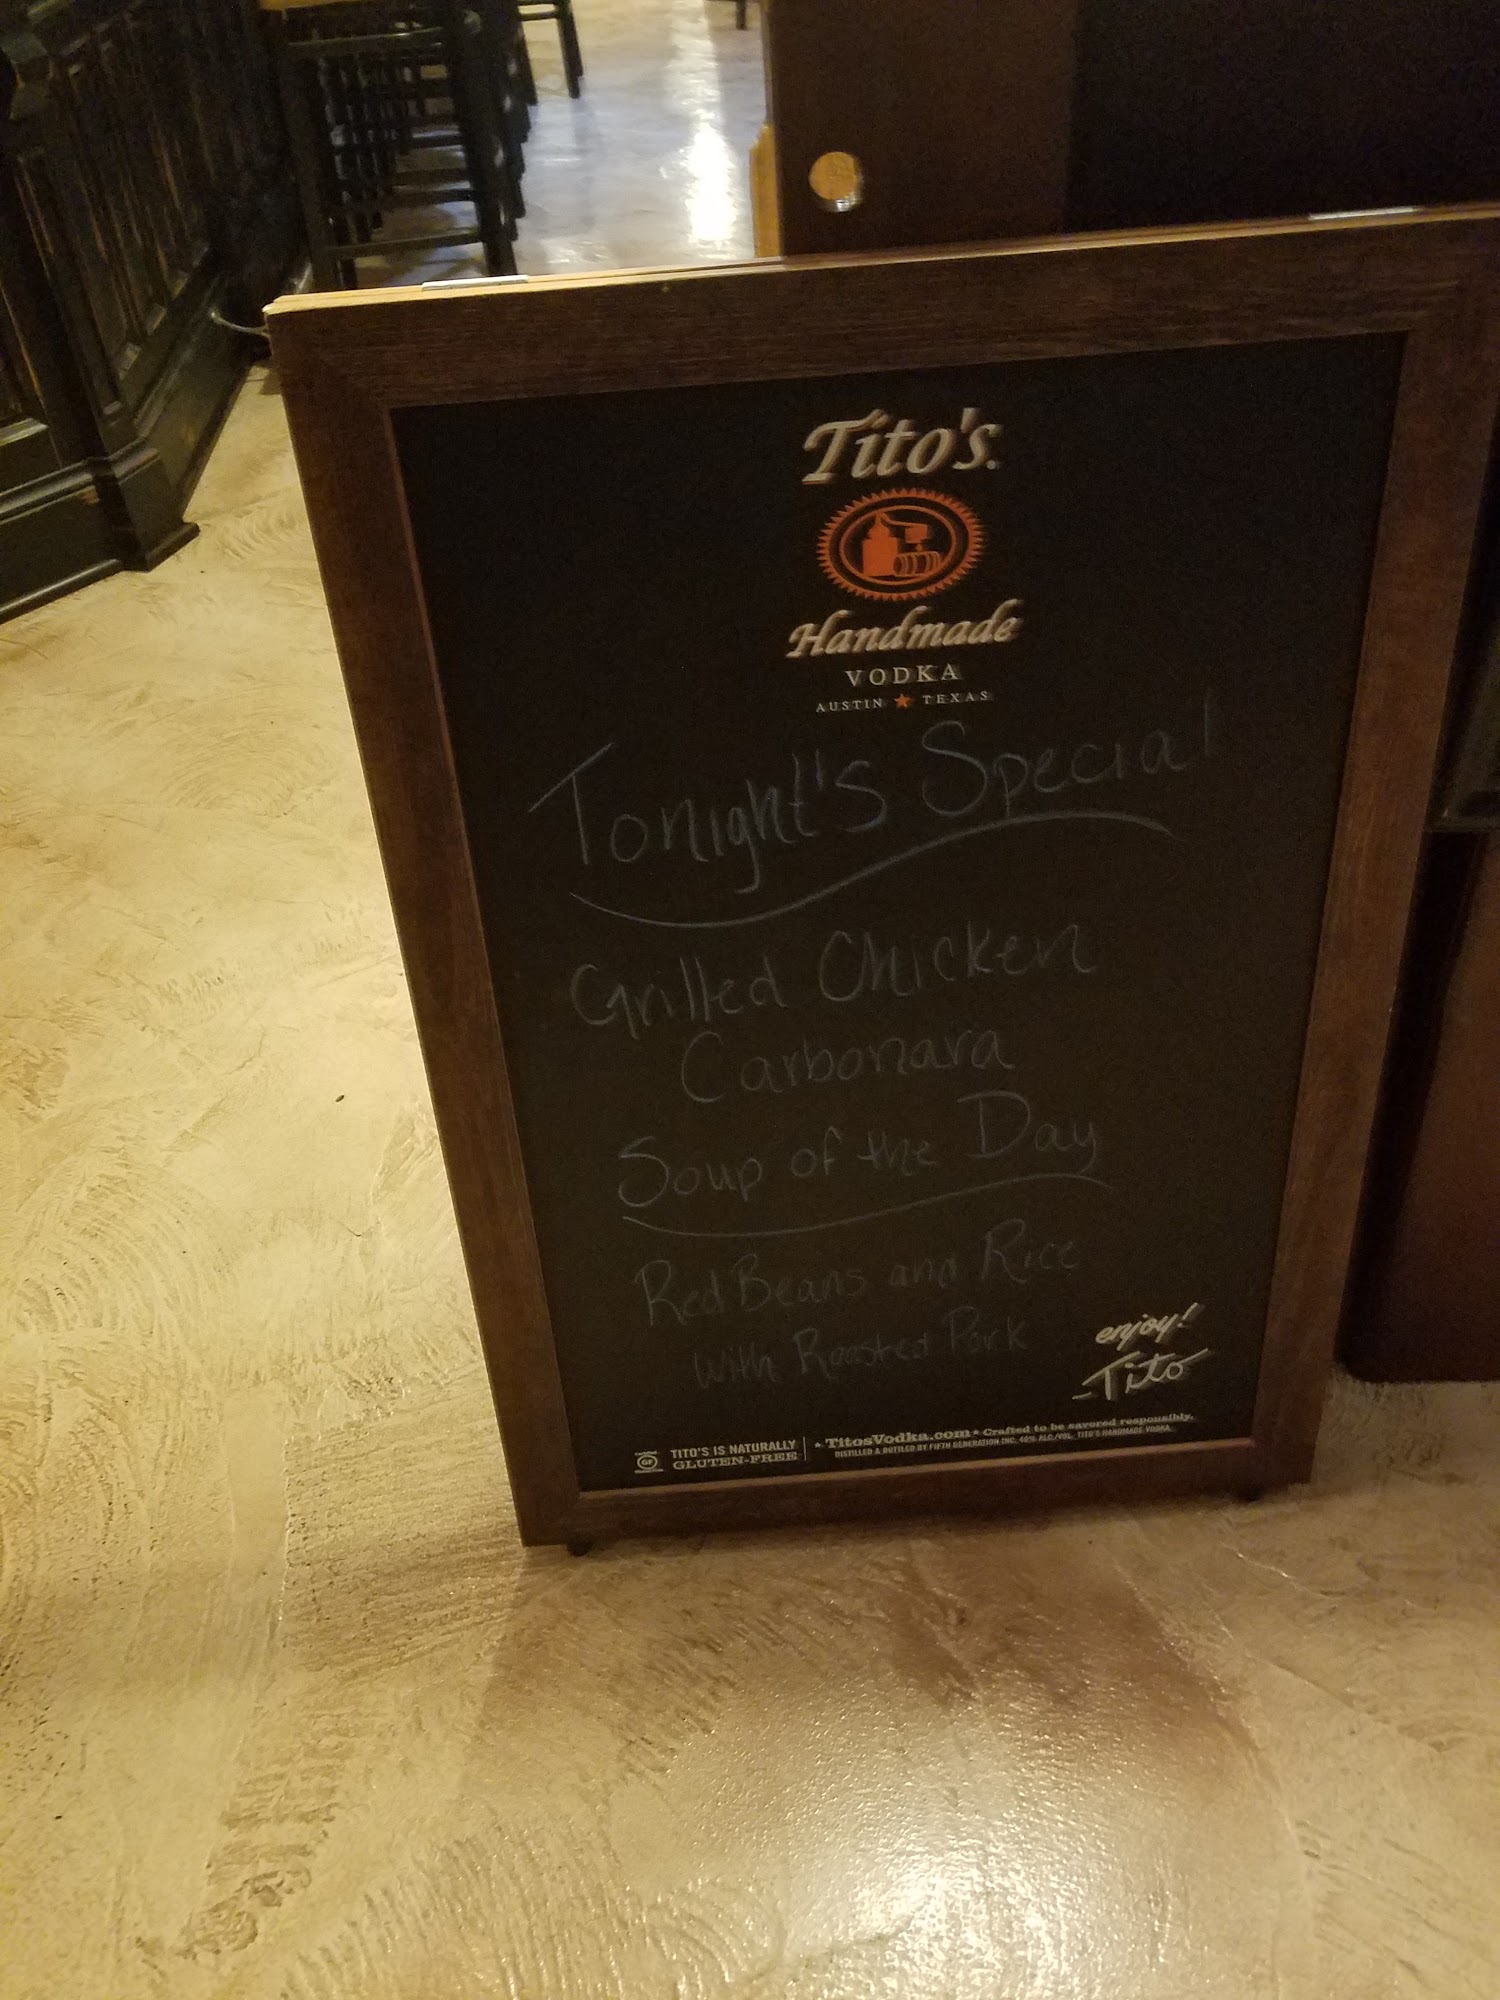 Tito's
Handmade
VODKA
AUSTIN ★ TEXAS
Tonight's Special
Grilled Chicken
Carbonara
Soup of the Day
Red Beans and Rice
with Roasted Pork
enjoy!
-Tito
CERTIFIED
GF
TITO'S IS NATURALLY
GLUTEN-FREE
★ TitosVodka.com ★ Crafted to be savored responsibly.
DISTILLED & BOTTLED BY FIFTH GENERATION INC. 40% ALC/VOL. TITO'S HANDMADE VODKA.